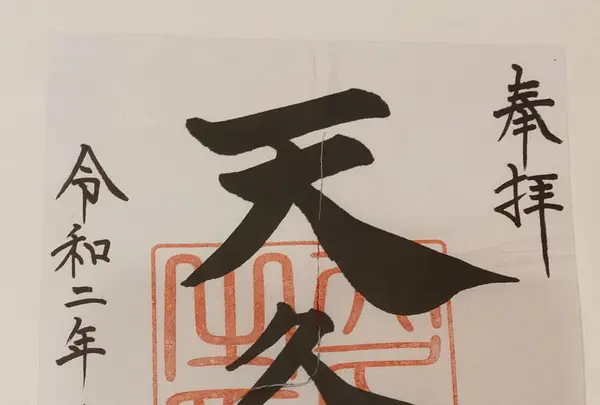 奉拝
天久
令和二年